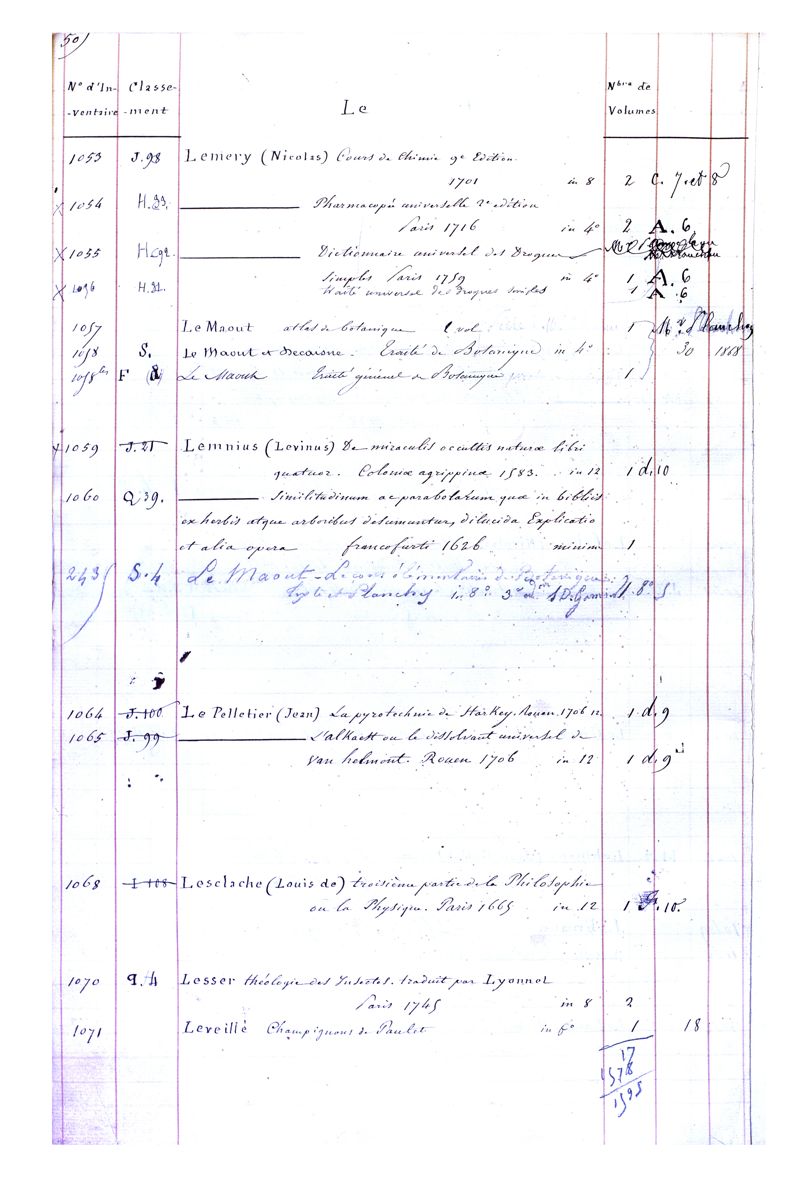 50)
N° d'In-ventaire Classe-ment Le Nbre de Volumes
1053 J.98 Lemery (Nicolas) Cours de Chimie 9e Edition
1701 in 8 2 C. 7 et 8
X 1054 H.93. Pharmacopée universelle 2e edition
Paris 1716 in 4° 2 A. 6
X 1055 H.92. Dictionnaire universel des Drogues
simples Paris 1759 in 4° 1 A. 6
X 1056 H.91. traité universel des drogues simples 1 A. 6
1057 Le Maout atlas de botanique 1 vol 1
1058 S. Le Maout et Decaisne. Traité de Botanique in 4° 30 1868
1058 bis F Le Maout Traité général de Botanique 1
X 1059 J.21 Lemnius (Levinus) De miraculis occultis naturæ libri
quatuor. Coloniæ agrippinæ 1583. in 12 1 d.10
1060 Q 39. Similitudinum ac parabolarum quæ in bibliis
ex herbis atque arboribus desumuntur, dilucida Explicatio
et alia opera francofurti 1626 minim 1
243 S.4 Le Maout - Lecons élémentaires de Botanique
Texte et Planches in 8° 3e 8°
1064 J.100 Le Pelletier (Jean) La pyrotechnie de Starkey. Rouen. 1706 12. 1 d.9
1065 J.99 L'alkaest ou le dissolvant universel de
Van helmont. Rouen 1706 in 12 1 d.9
1068 I 108 Lesclache (Louis de) troisième partie de la Philosophie
ou la Physique. Paris 1665 in 12 1 10.
1070 9.4 Lesser théologie des Insectes. traduit par Lyonnet
Paris 1745 in 8 2
1071 Leveillé Champignons de Paulet in f° 1 18
17
1578
1595